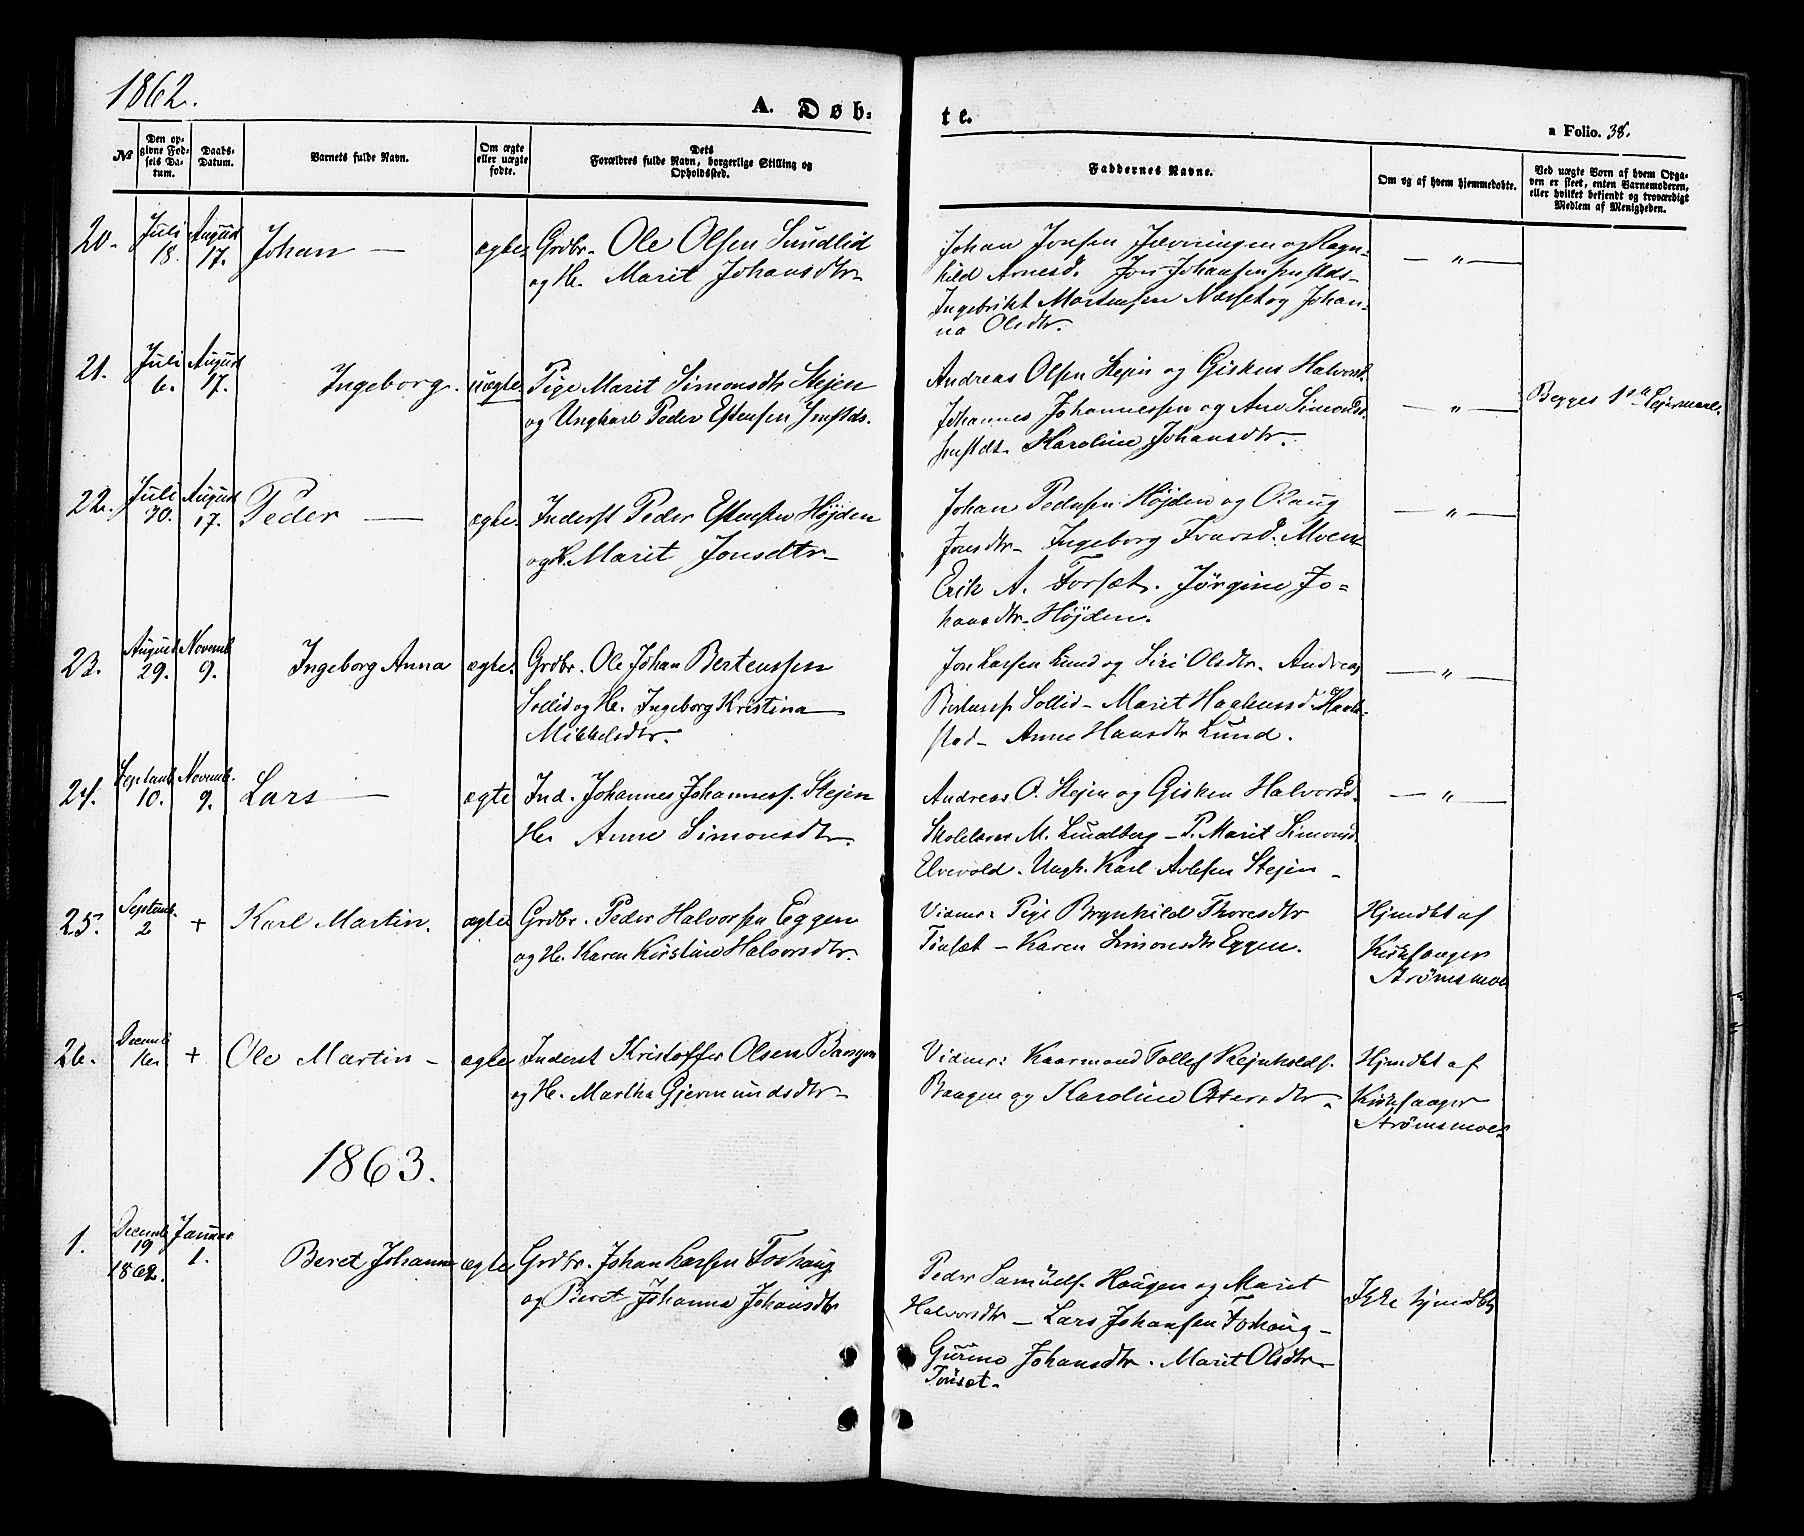 1862.
A. Døb-
te.
a Folio. 38.
№
Den opgivne Fødsels Datum.
Daabs-Datum.
Barnets fulde Navn.
Om ægte eller uægte fødte.
Dets Forældres fulde Navn, borgerlige Stilling og Opholdssted.
Faddernes Navne.
Om og af hvem hjemmedøbte.
Ved uægte Børn af hvem Opgaven er skeet, enten Barnemoderen, eller hvilket bekjendt og troværdigt Medlem af Menigheden.
20. Juli 18. August 17. Johan — ægte. Grdbr. Ole Olsen Sundlid
og H. Marit Johansdtr
Johan Jonsen Jævningen og Ragn-
hild Arnesd. Jon Johansen smstds
Ingebrikt Mortensen Næsset og Johan-
na Olsdtr.
— " —
21. Juli 6. August 17. Ingeborg. uægte. Pige Marit Simonsdtr Stejen
og Ungkarl Peder Estensen Smstds.
Andreas Olsen Stejen og Gisken Halvorsd.
Johannes Johannessen og Ane Simonsd.
smstds. Karoline Johansdtr.
— " —
Begges 1ste Lejermaal.
22. Juli 30. August 17. Peder — ægte. Inderst Peder Estensen Højden
og H. Marit Jonsdtr
Johan Pedersen Højden og Olaug
Jonsdtr. Ingeborg Ivarsd. Moen
Erik A. Forsæt. Jørgine Jo-
hansdtr Højden.
— " —
23. August 29. Novemb. 9. Ingeborg Anna ægte. Grdbr. Ole Johan Bertenssen
Sollid og H. Ingeborg Kristina
Mikkelsdtr.
Jon Larsen Lund og Siri Olsdtr. Andreas
Bertenss. Sollid - Marit Haakensd
stad - Anne Hansdtr Lund.
— " —
24. Septemb. 10. Novemb. 9. Lars — ægte Ind. Johannes Johanness. Stejen
H. Anne Simonsdtr.
Andreas O. Stejen og Gisken Halvorsd.
Skolelærer M. Lundberg - P. Marit Simonsd.
Elvevold. Ungk. Karl Stejen
— " —
25. Septemb. 2 + Karl Martin. ægte Grdbr. Peder Halvorsen Eggen
og H. Karen Kirstine Halvorsdtr.
Vidner: Pige Brynhild Thoresdtr
Tønsæt - Karen Simonsdtr Eggen.
Hjmdbt af
Kirkesanger
Strømsmoe
26. Decemb. + Ole Martin - ægte Inderst Kristoffer Olsen Bangen
og H. Martha Gjermundsdtr
Vidner: Tollef
og Karoline
Hjmdbt af
Kirkesanger
Strømsmoe.
1863.
1. Decemb. 19 1862. Januar 1. Beret Johanna ægte Grdbr. Johan Larsen Foshaug
og Beret Johanna Johansdtr
Peder Samuels. Haugen og Marit
Halvorsdtr - Lars Johansen Foshaug -
Gurine Johansdtr. Marit Olsdtr
Tønsæt.
Ikke hjmdbt